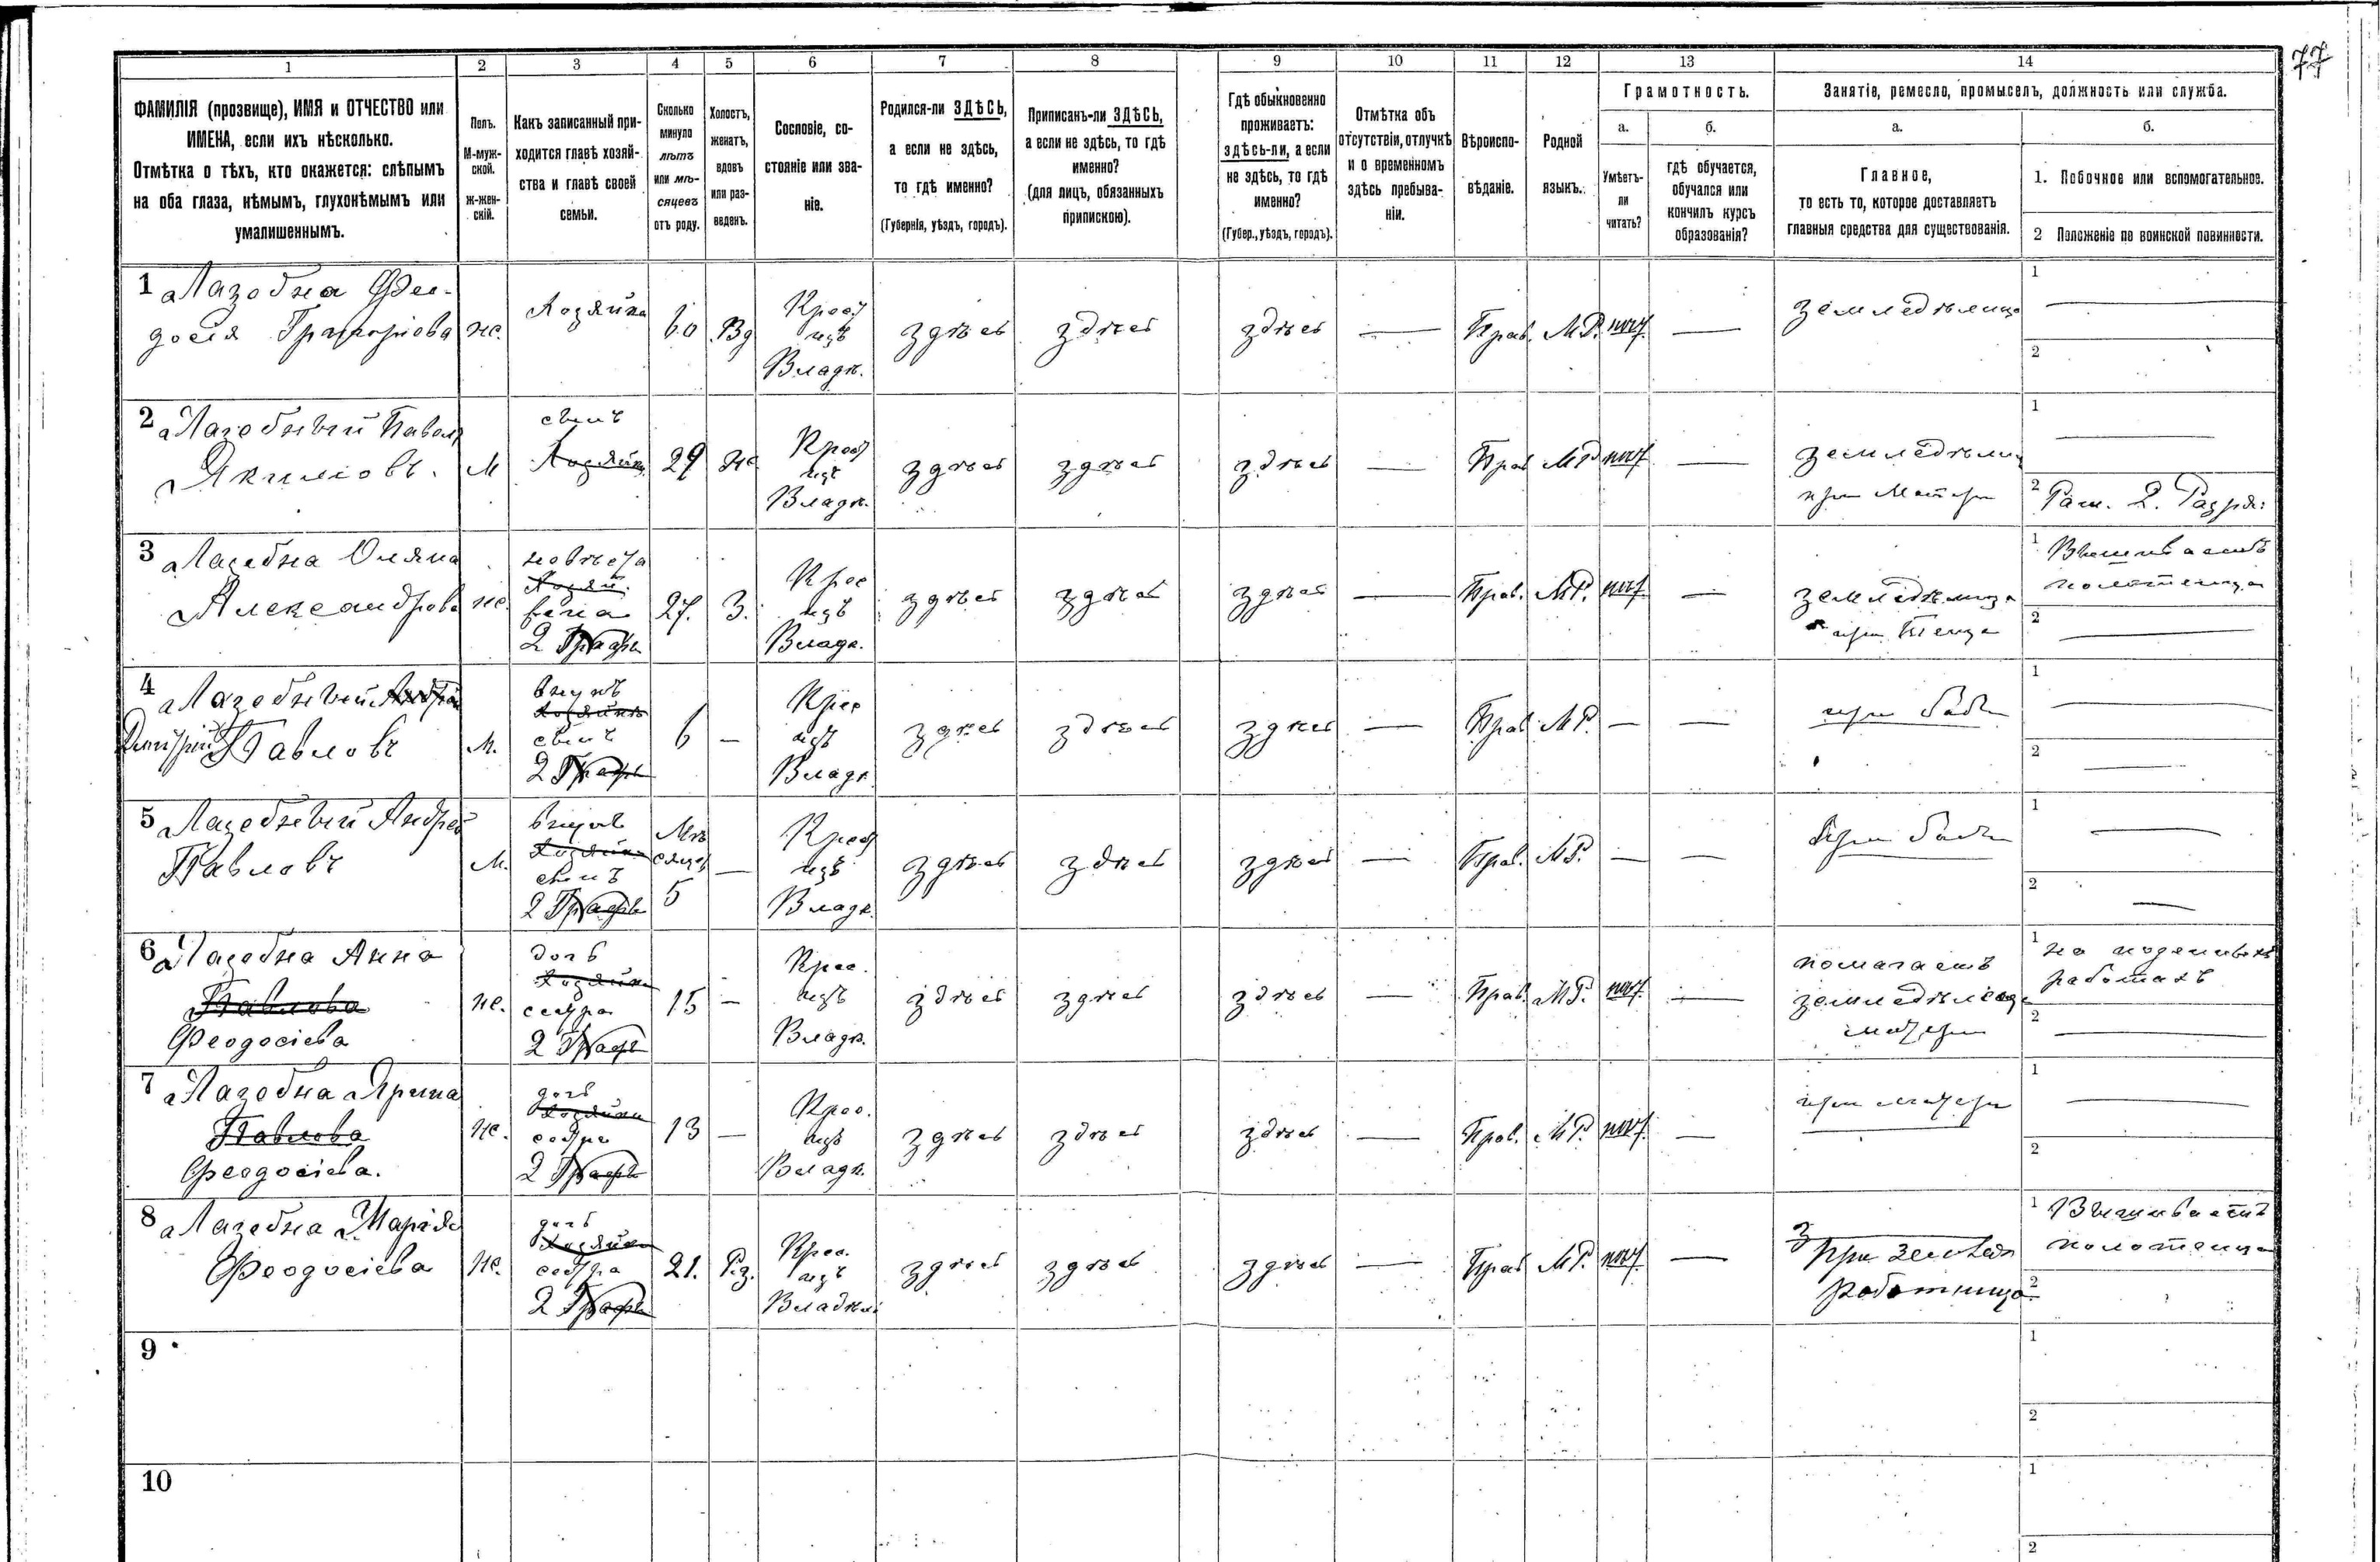 77
1 2 3 4 5 6 7 8 9 10 11 12 13 14
ФАМИЛІЯ (прозвище), ИМЯ и ОТЧЕСТВО или
ИМЕНА, если ихъ нѣсколько.
Отмѣтка о тѣхъ, кто окажется: слѣпымъ
на оба глаза, нѣмымъ, глухонѣмымъ или
умалишеннымъ.
Полъ.
М-муж-
ской.
Ж-жен-
скій.
Какъ записанный при-
ходится главѣ хозяй-
ства и главѣ своей
семьи.
Сколько
минуло
лѣтъ
или мѣ-
сяцевъ
отъ роду.
Холостъ,
женатъ,
вдовъ
или раз-
веденъ.
Сословіе, со-
стояніе или зва-
ніе.
Родился-ли ЗДѢСЬ,
а если не здѣсь,
то гдѣ именно?
(Губернія, уѣздъ, городъ).
Приписанъ-ли ЗДѢСЬ,
а если не здѣсь, то гдѣ
именно?
(для лицъ, обязанныхъ
припискою).
Гдѣ обыкновенно
проживаетъ:
здѣсь-ли, а если
не здѣсь, то гдѣ
именно?
(Губер., уѣздъ, городъ).
Отмѣтка объ
отсутствіи, отлучкѣ
и о временномъ
здѣсь пребыва-
ніи.
Вѣроиспо-
вѣданіе.
Родной
языкъ.
Грамотность.
а.
Умѣетъ-
ли
читать?
б.
гдѣ обучается,
обучался или
кончилъ курсъ
образованія?
Занятіе, ремесло, промыселъ, должность или служба.
а.
Главное,
то есть то, которое доставляетъ
главныя средства для существованія.
б.
1. Побочное или вспомогательное.
2 Положеніе по воинской повинности.
1 Лазобна Фео-
досія Григоріова
же.
Хозяйка
60
Вд
Крес
изъ
Владѣ.
здѣсь
здѣсь
здѣсь
—
Прав.
М.Р.
нѣт
—
земледѣлица
1 —
2
2 Лазебный Павелъ
Якимовъ.
М
сынъ
Хозяйки
29
же
Крес
изъ
Владѣ.
здѣсь
здѣсь
здѣсь
—
Прав
М Р
нѣт
—
земледѣлец
при Матери
1 —
2 Рат. 2. Разряд:
3 Лазебна Оляна
Александрова
же.
невѣста
Хозяй.
жена
2 Графы
27.
З.
Крес
изъ
Владѣ.
здѣсь
здѣсь
здѣсь
—
Прав.
М.Р.
нѣт
—
земледѣлица
при
1 Вышиваетъ
полотенца
2 —
4 Лазебный Андрей
Дмитрій Павловъ
М.
внукъ
Хозяйки
сынъ
2 Графы
6
—
Крес
изъ
Владѣ
здѣсь
здѣсь
здѣсь
—
Прав
М.Р.
—
—
при бабѣ
1 —
2 —
5 Лазебный Андрей
Павловъ
М.
внукъ
Хозяйки
сынъ
2 Графы
Мѣ
сяцев
5
—
Крес
изъ
Владѣ.
здѣсь
здѣсь
здѣсь
—
Прав.
М.Р.
—
—
При бабѣ
1 —
2 —
6 Лазебна Анна
Павлова
Феодосіева
же.
дочь
Хозяйки
сестра
2 Графы
15
—
Крес.
изъ
Владѣ.
здѣсь
здѣсь
здѣсь
—
Прав.
М.Р.
нѣт
—
помагаетъ
земледѣлица
матери
1 на поденныхъ
работахъ
2 —
7 Лазебна Ярина
Павлова
Феодосіева.
же.
дочь
Хозяйки
сестра
2 Графы
13
—
Крес.
изъ
Владѣ.
здѣсь
здѣсь
здѣсь
—
Прав.
М.Р.
нѣт
—
при матери
1 —
2
8 Лазебна Марія
Феодосіева
же.
дочь
Хозяйки
сестра
2 Графы
21.
Рз.
Крес.
изъ
Владѣл
здѣсь
здѣсь
здѣсь
—
Прав
М.Р.
нѣт
—
При
Работница
1 Вышиваетъ
полотенца
2
9
1
2
10
1
2